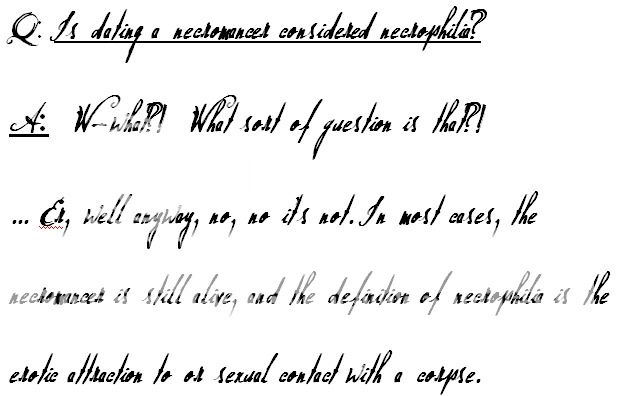 Q. Is dating a necromancer considered necrophilia?
A: W-what?! What sort of question is that?!
... Er, well anyway, no, no it's not. In most cases, the
necromancer is still alive, and the definition of necrophilia is the
erotic attraction to or sexual contact with a corpse.